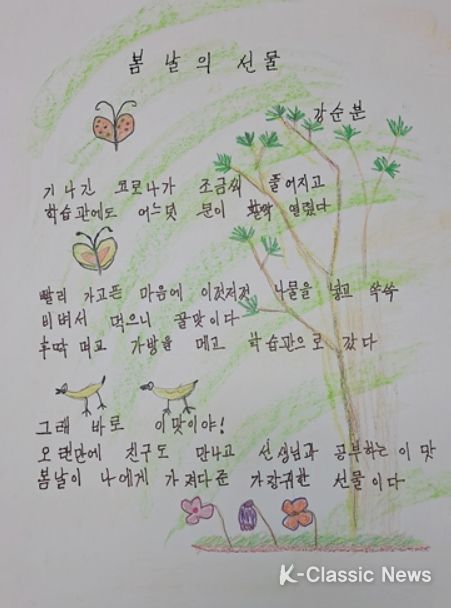 봄 날 의 선물
강순분
기 나긴 코로나가 조금씩 풀어지고
학습관에도 어느덧 문이 활짝 열렸다
빨리 가고픈 마음에 이것저것 나물을 넣고 쓱쓱
비벼서 먹으니 꿀맛이다
후딱 먹고 가방을 메고 학습관으로 갔다
그래 바로 이맛이야!
오랜만에 친구도 만나고 선생님과 공부하는 이 맛
봄날이 나에게 가져다준 가장귀한 선물이다
K-Classic News